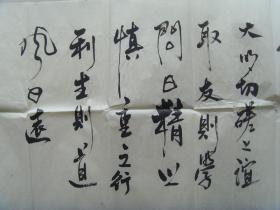 大以切磋之誼
取友則學
問日精以
慎重之行
利生則道
風日遠